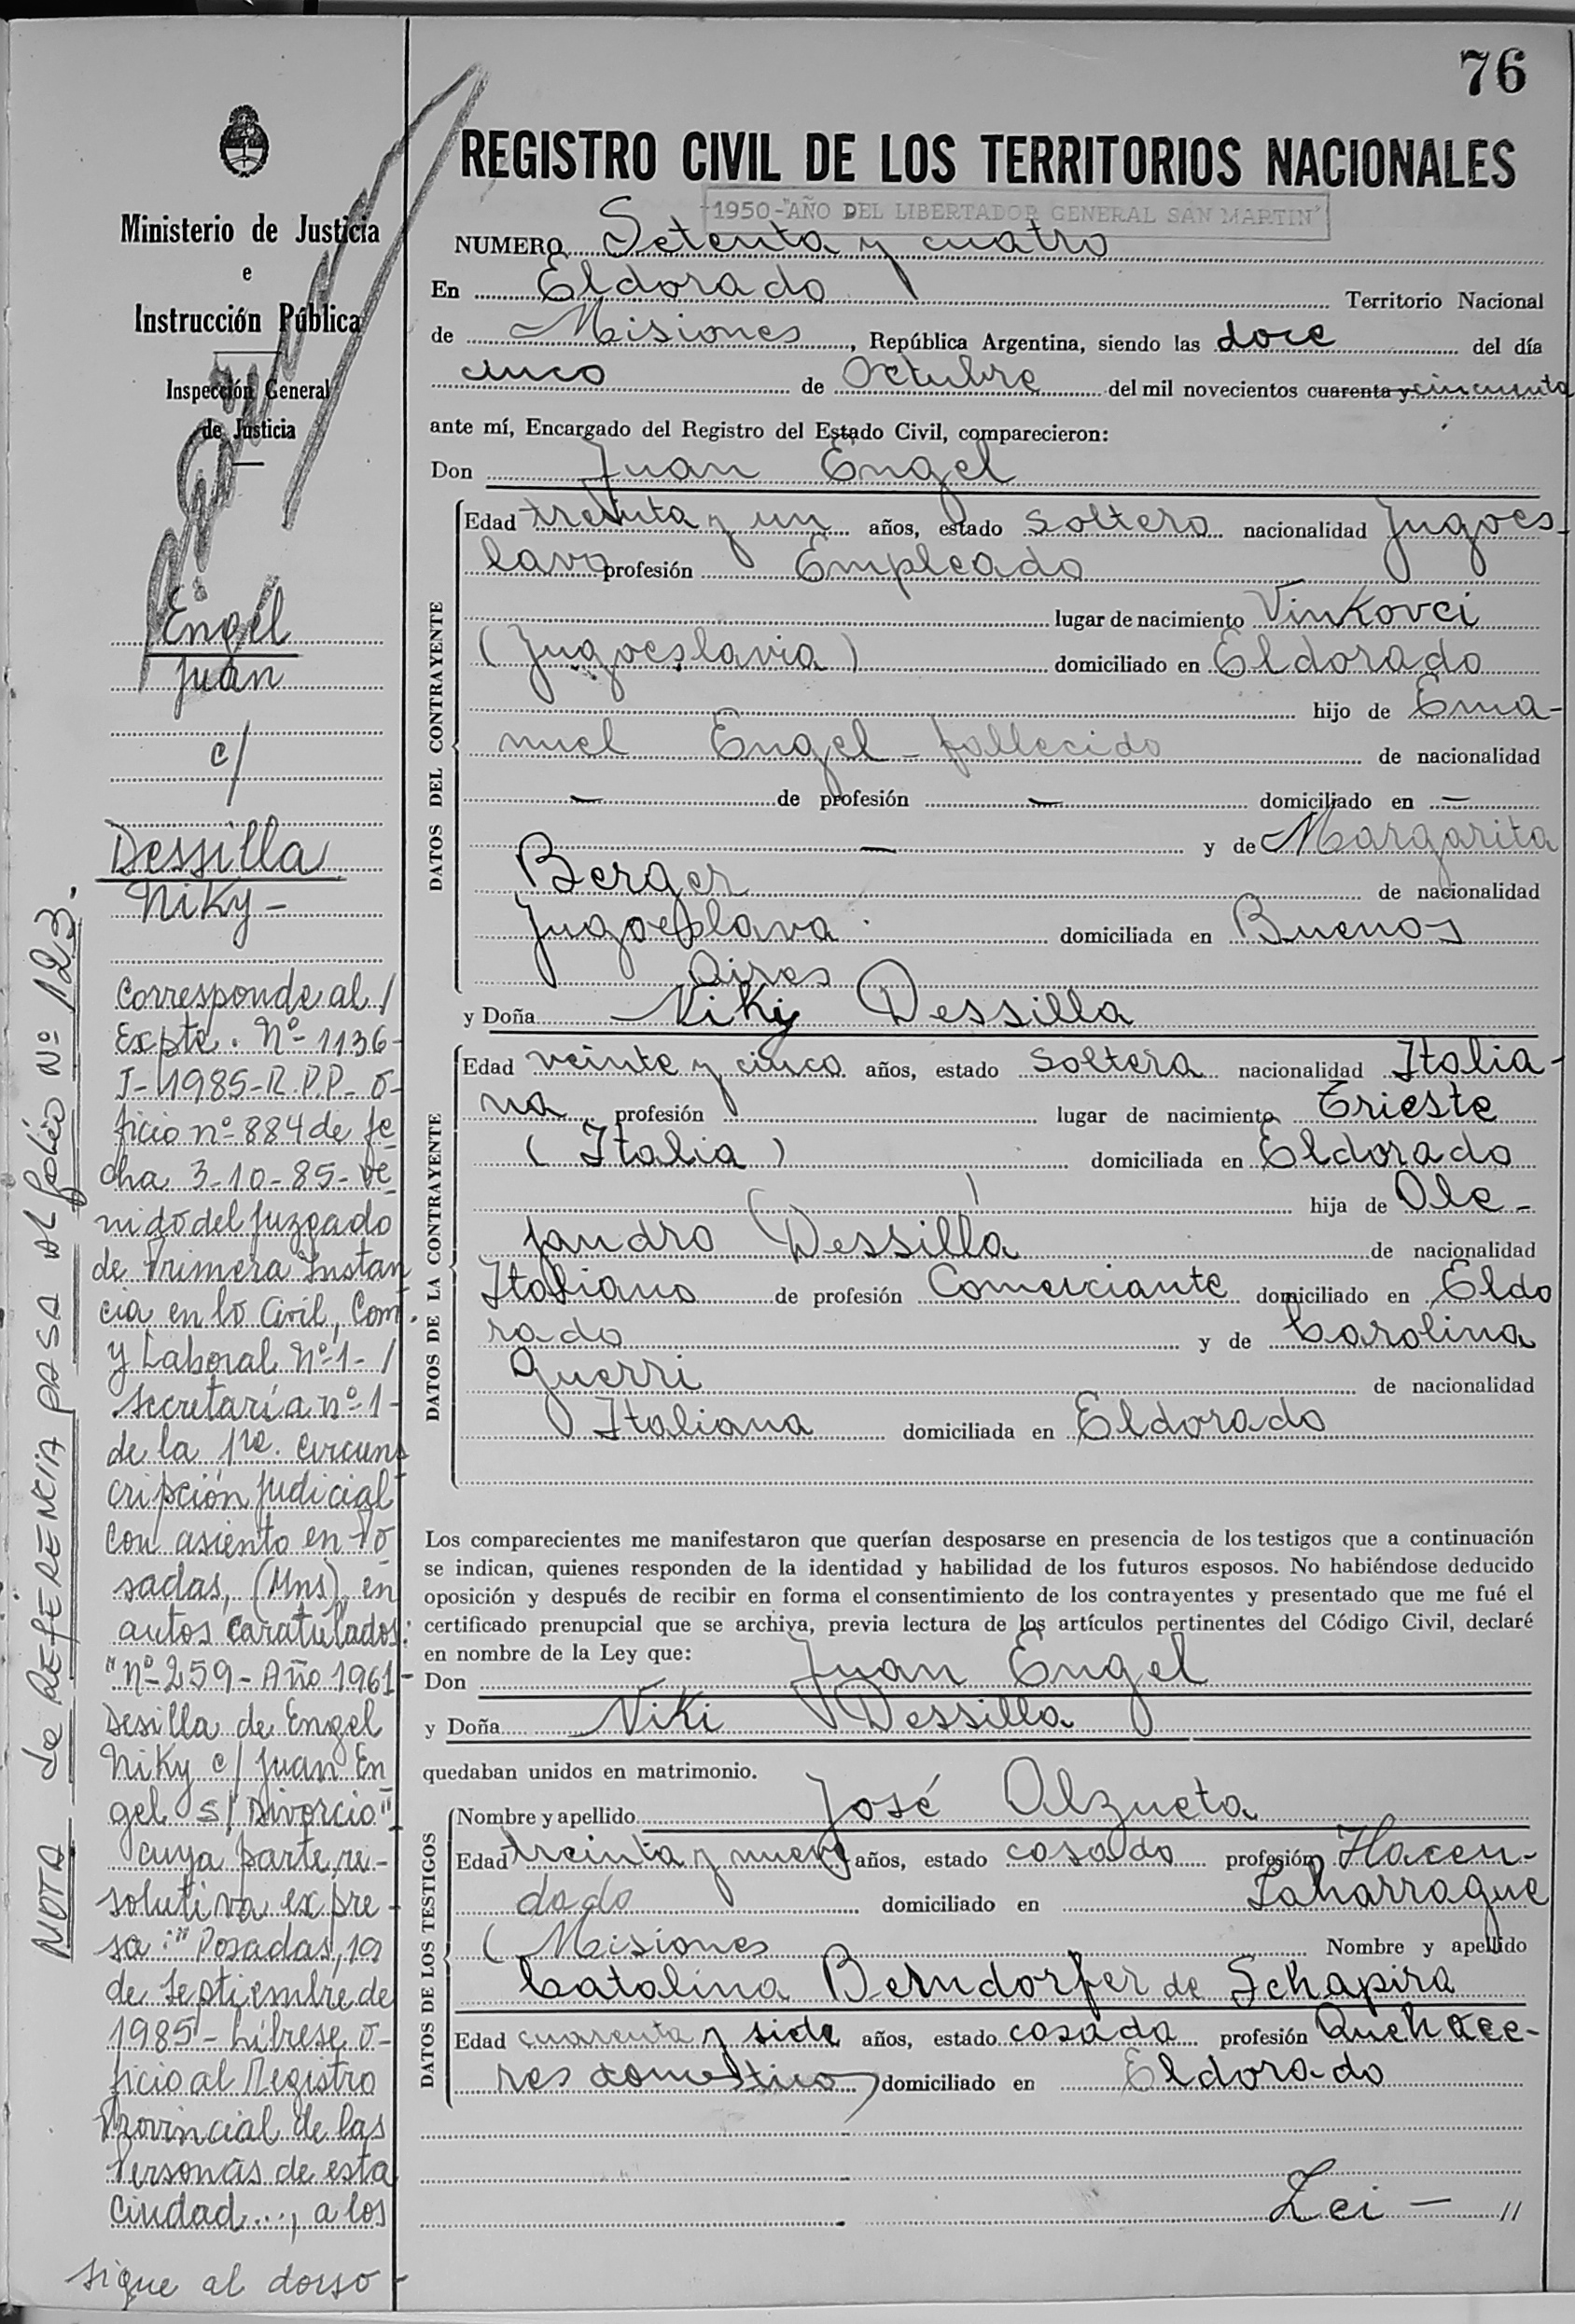 76
REGISTRO CIVIL DE LOS TERRITORIOS NACIONALES
1950-"AÑO DEL LIBERTADOR GENERAL SAN MARTIN"
NUMERO Setenta y cuatro
En Eldorado Territorio Nacional
de Misiones, República Argentina, siendo las doce del día
cinco de Octubre del mil novecientos cuarenta y cincuenta
ante mí, Encargado del Registro del Estado Civil, comparecieron:
Don Juan Engel
DATOS DEL CONTRAYENTE
Edad treinta y un años, estado soltero nacionalidad Jugoes-
lavo profesión Empleado
lugar de nacimiento Vinkovci
(Jugoeslavia) domiciliado en Eldorado
hijo de Ema-
nuel Engel - fallecido de nacionalidad
— de profesión — domiciliado en —
— y de Margarita
Berger de nacionalidad
Jugoeslava domiciliada en Buenos
Aires
y Doña Niky Dessilla
DATOS DE LA CONTRAYENTE
Edad veinte y cinco años, estado soltera nacionalidad Italia-
na profesión lugar de nacimiento Trieste
(Italia) domiciliada en Eldorado
hija de Ale-
jandro Dessilla de nacionalidad
Italiano de profesión Comerciante domiciliado en Eldo
rado y de Carolina
Guerri de nacionalidad
Italiana domiciliada en Eldorado
Los comparecientes me manifestaron que querían desposarse en presencia de los testigos que a continuación
se indican, quienes responden de la identidad y habilidad de los futuros esposos. No habiéndose deducido
oposición y después de recibir en forma el consentimiento de los contrayentes y presentado que me fué el
certificado prenupcial que se archiva, previa lectura de los artículos pertinentes del Código Civil, declaré
en nombre de la Ley que:
Don Juan Engel
y Doña Niki Dessilla
quedaban unidos en matrimonio.
DATOS DE LOS TESTIGOS
Nombre y apellido José Alzueta
Edad treinta y nueve años, estado casado profesión Hacen-
dado domiciliado en Laharrague
(Misiones Nombre y apellido
Catalina Berndorfer de Schapira
Edad cuarenta y siete años, estado casada profesión Quehace-
res domestico) domiciliado en Eldorado
Lei — //
Ministerio de Justicia
e
Instrucción Pública
Inspección General
de Justicia
Engel
Juan
c/
Dessilla
Niky -
Corresponde al /
Expte. Nº 1136-
J-1985-R.P.P- O-
ficio nº 884 de fe
cha 3-10-85- ve
nido del Juzgado
de Primera Instan
cia en lo Civil, Com.
y Laboral Nº 1- /
Secretaría nº 1-
de la 1ra. Circuns
cripción Judicial
con asiento en Po
sadas, (Mns) en
autos caratulados:
"Nº 259 - Año 1961-
Desilla de Engel
Niky c/ Juan En
gel s/ Divorcio"
cuya parte re-
solutiva expre-
sa: "Posadas, 19
de Septiembre de
1985 - Líbrese O-
ficio al Registro
Provincial de las
Personas de esta
Ciudad..., a los
sigue al dorso -
NOTA de REFERENCIA PASA AL folio Nº 123.